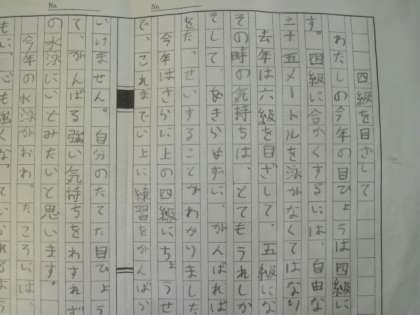 No.
No.
四級を目ざして
わたしの今年の目ひょうは四級に
す。四級に合かくするには、自由な
二十五メートルを泳がなくてはなり
去年は六級を目ざして、五級にな
その時の気持ちは、とてもうれしか
そして、あきらめずに、がんばれば
をたっせいすることがわかりました
今年はさらに上の四級にちょうせ
で、これまでい上に練習をがんばら
いけません。自分のたてた目ひょう
て、がんばる強い気持ちをわすれず
の水泳にいどみたいと思います。
今年の水泳がおわったころには、
心も強くなっていられるよう